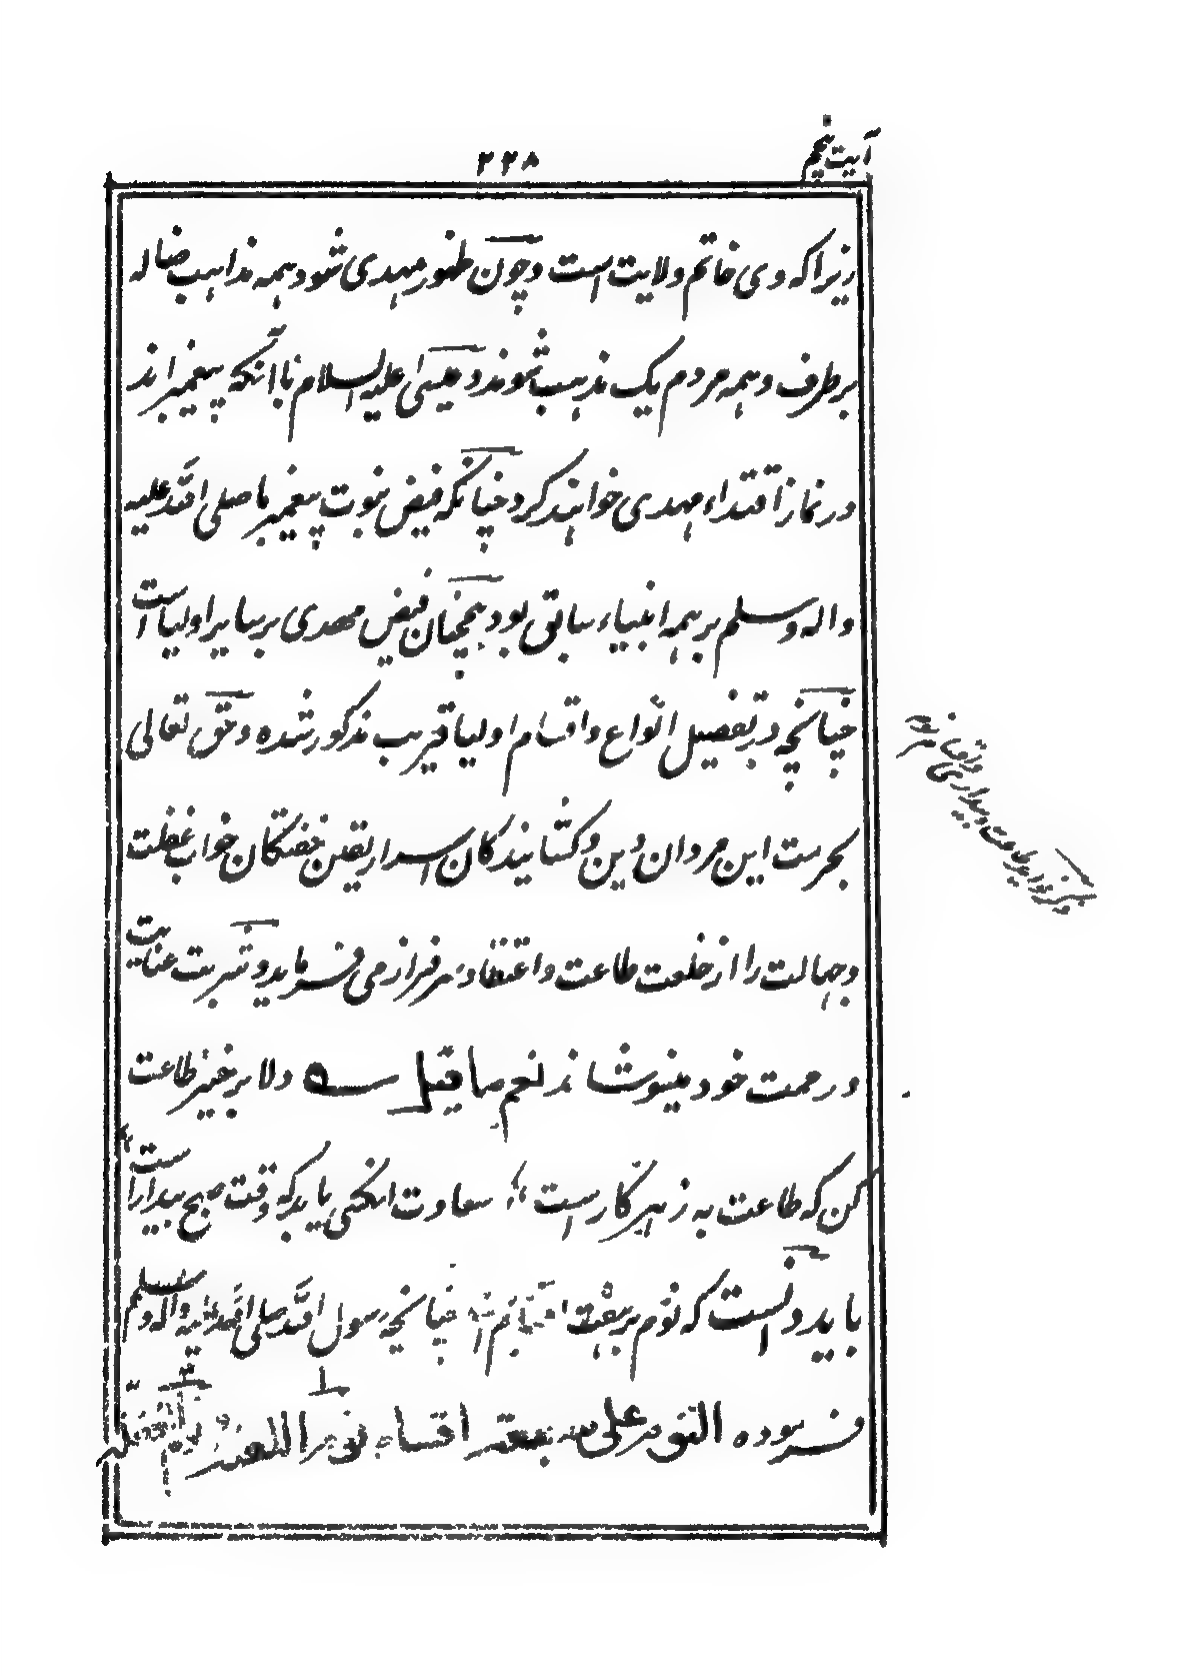 آیت پنجم
۲۲۸
زیرا که وی خاتم ولایت است و چون ظهور مهدی شود همه مذاهب ضاله
برطرف و همه مردم یک مذهب شوند و عیسی علیه السلام با آنکه پیغمبراند
در نماز اقتداء مهدی خواهند کرد و چنانکه فیض نبوت پیغمبر ما صلی الله علیه
واله وسلم بر همه انبیاء سابق بود همچنان فیض مهدی بر سایر اولیا است
چنانچه در تفصیل انواع و اقسام اولیا قریب مذکور شده و حق تعالی
بحرمت این مردان دین و کشانیندکان اسرار یقین خفتکان خواب غفلت
و جهالت را از خلعت طاعت و اعتقاد سرفراز می فرماید و شربت عنایت
و رحمت خود مینوشاند نعم ما قیل دلا برخیز طاعت
کن که طاعت به ز هر کارست سعادت انکسی یابد که وقت صبح بیدار است
باید دانست که نوم بر هفت اقسام است چنانچه رسول الله صلی الله علیه واله وسلم
فرموده النوم علی سبعة اقسام نوم الغفلة
ذکر فواید طاعت و بیداری
واقسام نوم